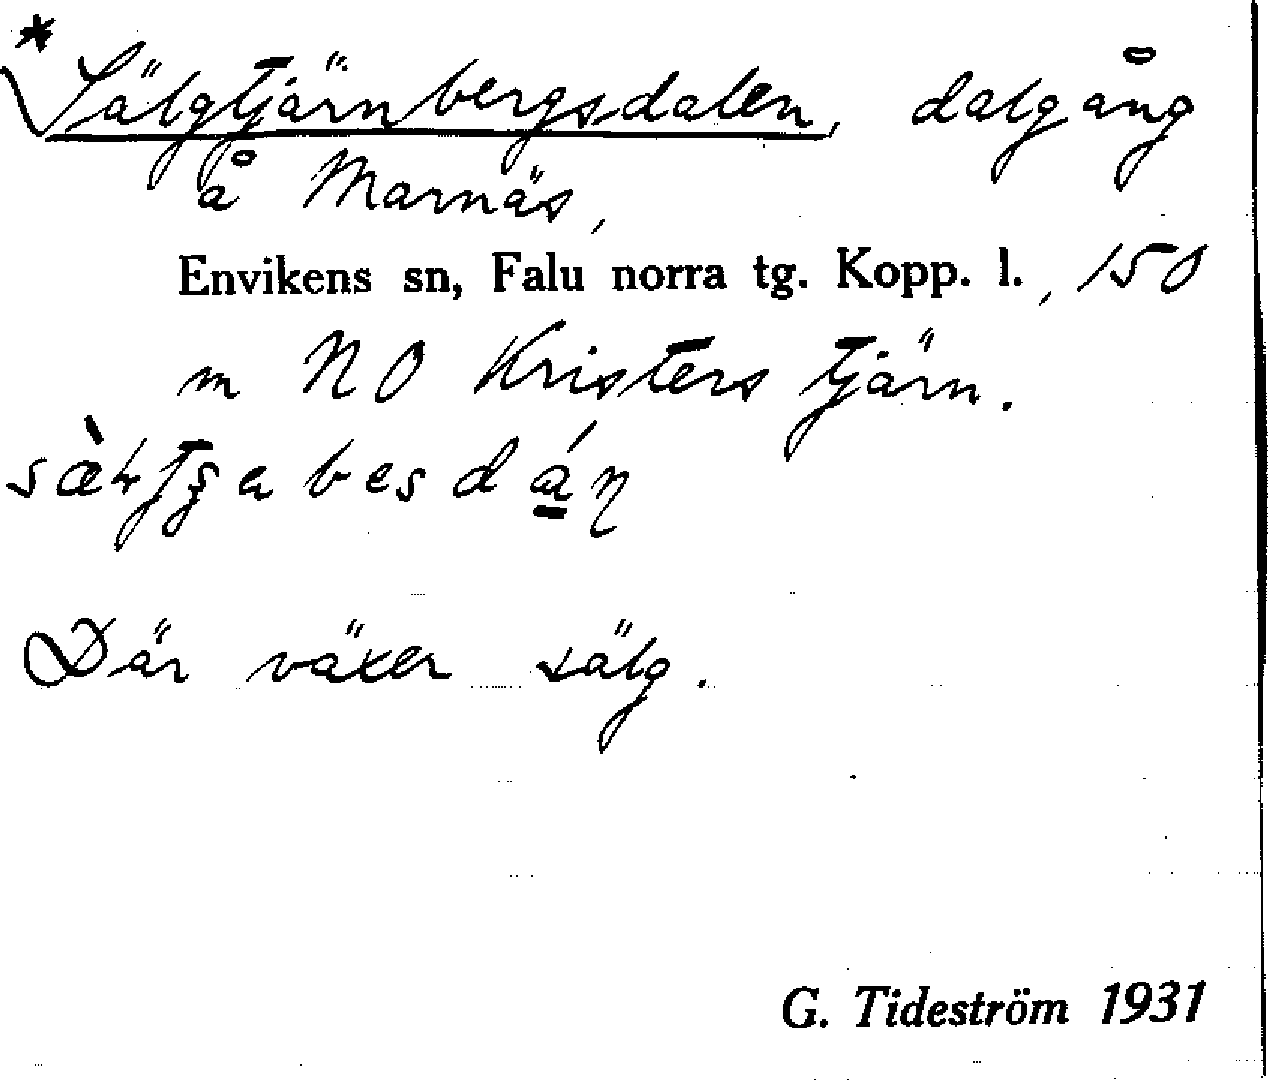 * Sälgtjärnbergsdalen, dalgång
å Marnäs,
Envikens sn, Falu norra tg. Kopp. l., 150
m NO Kristers tjärn.
Där växer sälg.
G. Tideström 1931